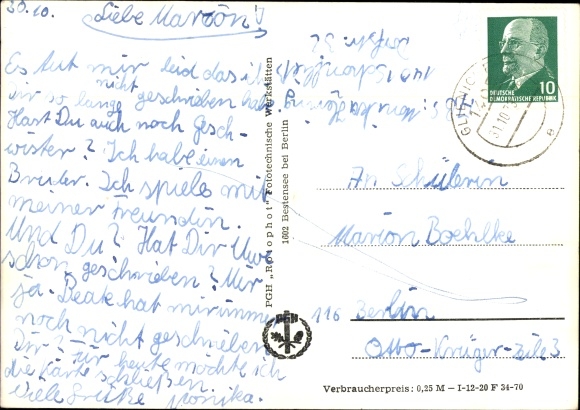 30.10.
Liebe Marion!
Es tut mir leid das ich
dir so lange nicht geschrieben habe.
Hast Du auch noch Gesch-
wister? Ich habe einen
Bruder. Ich spiele mit
meiner Freundin.
Und Du? Hat Dir Uwe
schon geschrieben? Mir
ja. Beate hat mir immer
noch nicht geschrieben.
Dir? Für heute möchte ich
die Karte schließen.
Viele Grüße Monika.
PGH „Rotophot" Fototechnische Werkstätten
1602 Bestensee bei Berlin
PGH
DEUTSCHE
DEMOKRATISCHE REPUBLIK
10
An Schülerin
Marion Boehlke
116 Berlin
Otto-Krüger-Zeile 3
Verbraucherpreis: 0,25 M – I-12-20 F 34-70